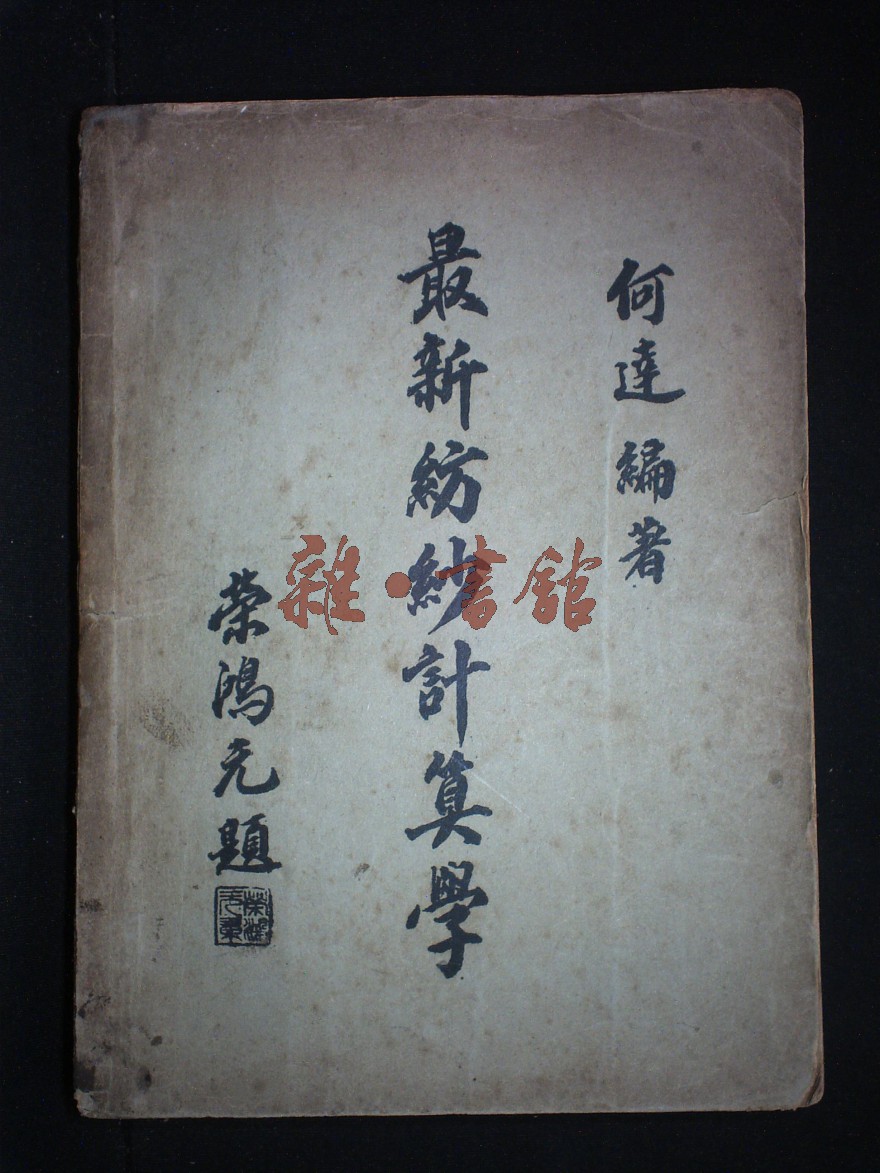 何達編著
最新紡紗計算學
榮鴻元題
雜·書館